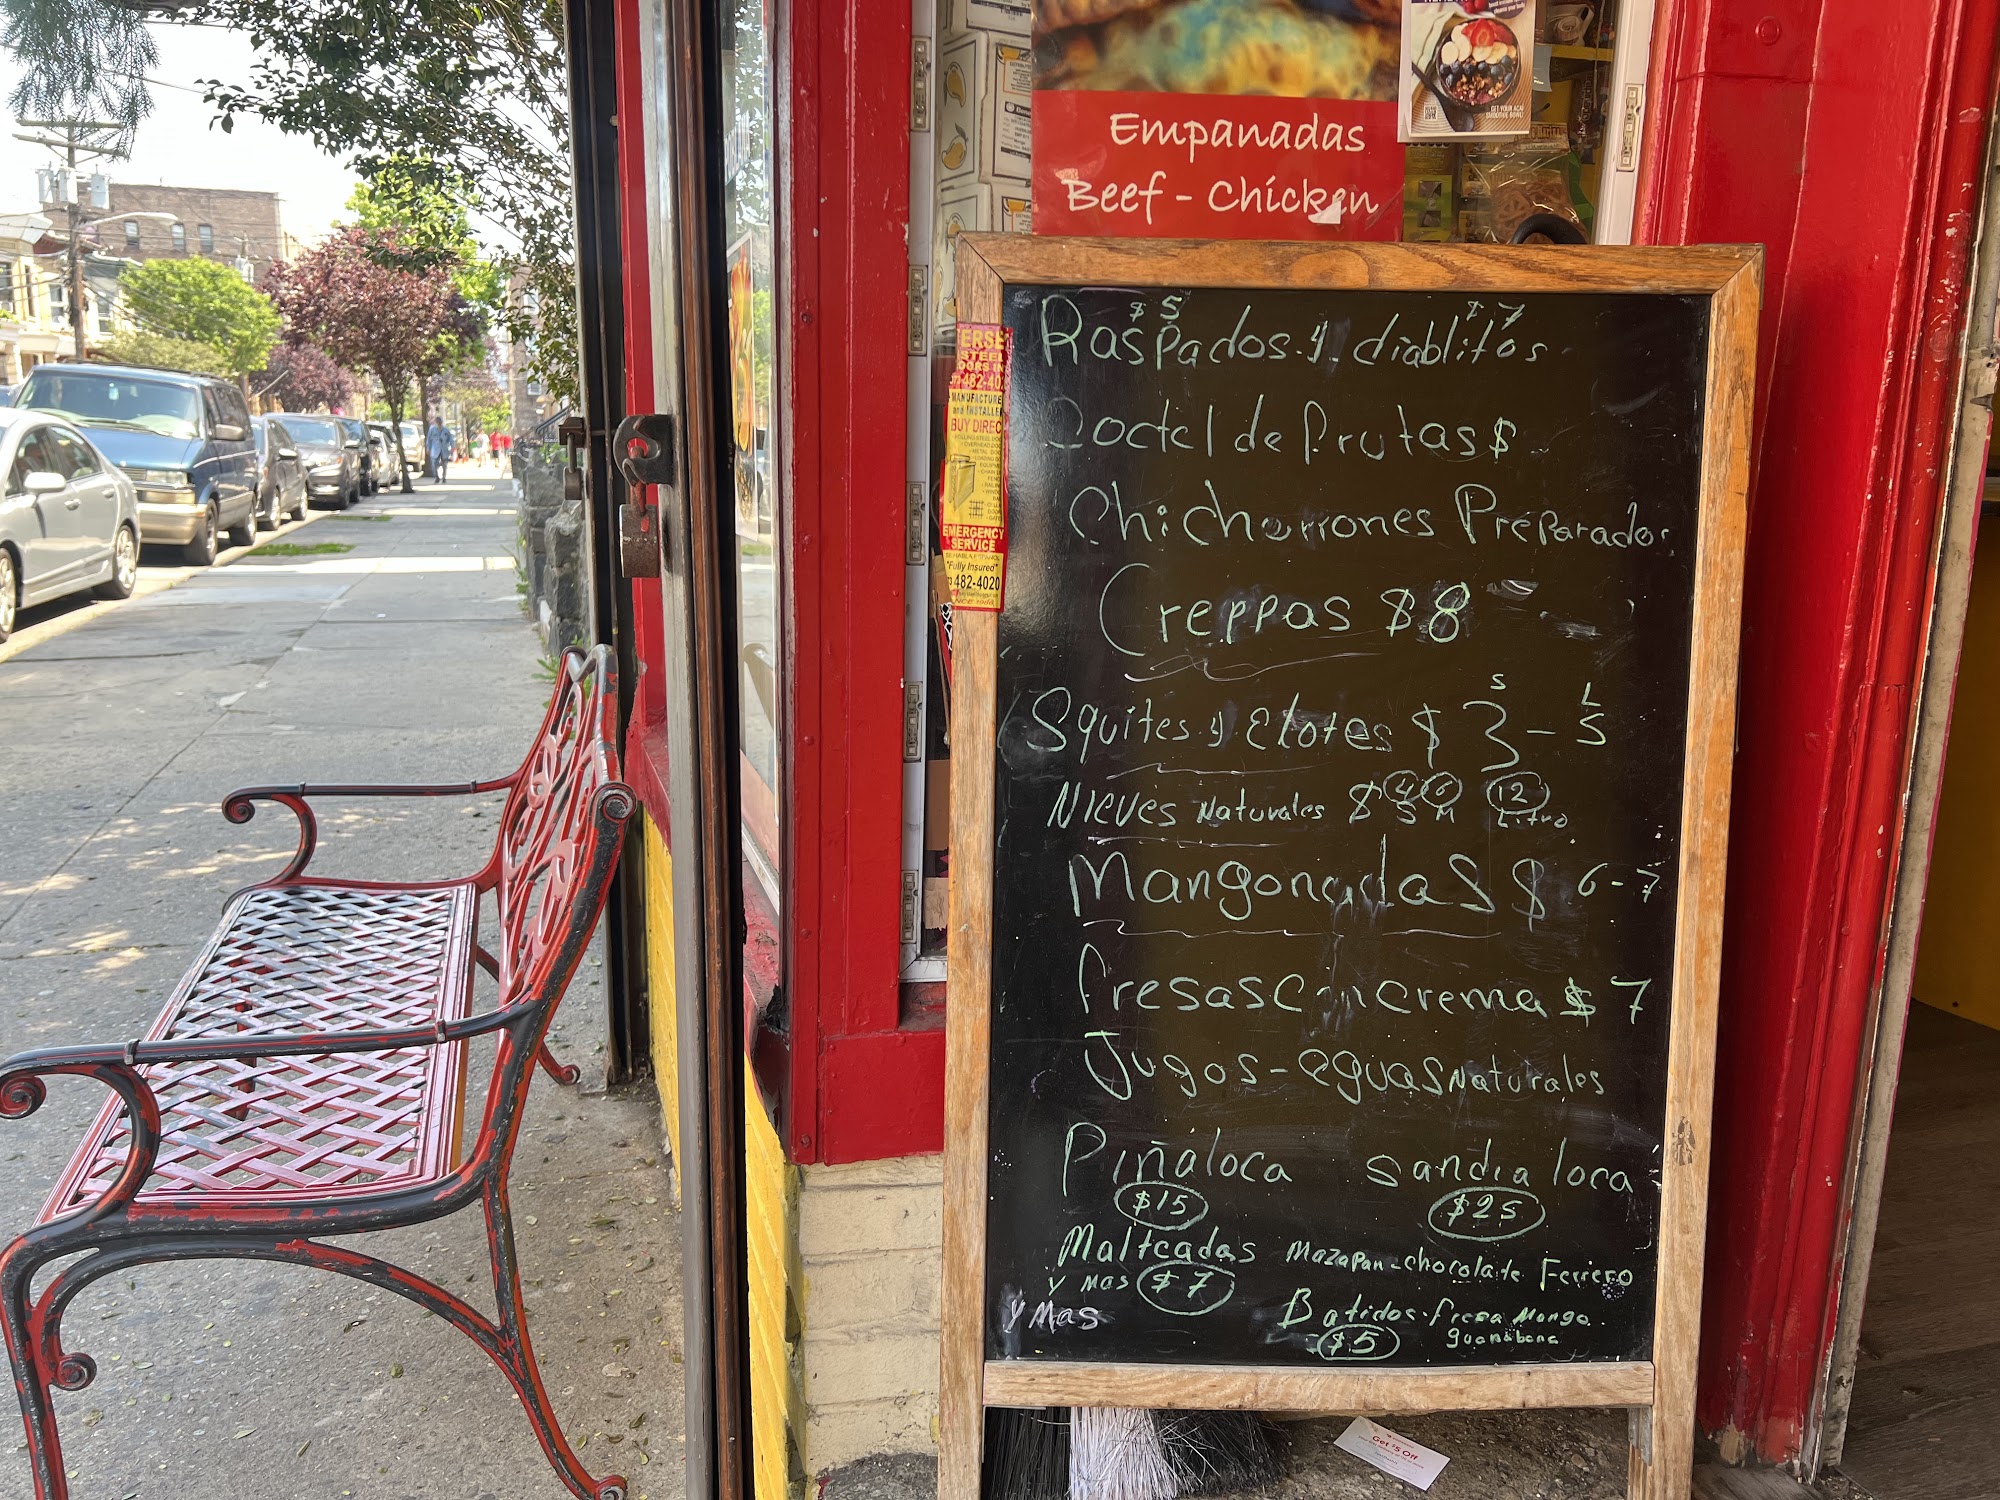 Empanadas
Beef - Chicken
GET YOUR ACAI
SMOOTHIE BOWL!
$5 $7
Raspados y diablitos
Coctel de frutas $
Chicharrones Preparados
Creppas $8
S L
Squites y Elotes $ 3 - 5
Nieves Naturales $ 4 6 12
S M Litro
Mangonadas $ 6-7
Fresas con crema $ 7
Jugos - aguas Naturales
Piña loca Sandia loca
$15 $25
Malteadas Mazapan - chocolate Ferrero
y mas $7
Y Mas Batidos - fresa Mango
$5 guanabana
ERSE
STEEL
DOORS IN
482-40
MANUFACTURE
and INSTALLE
BUY DIREC
EMERGENCY
SERVICE
"Fully Insured"
482-4020
Get $5 Off